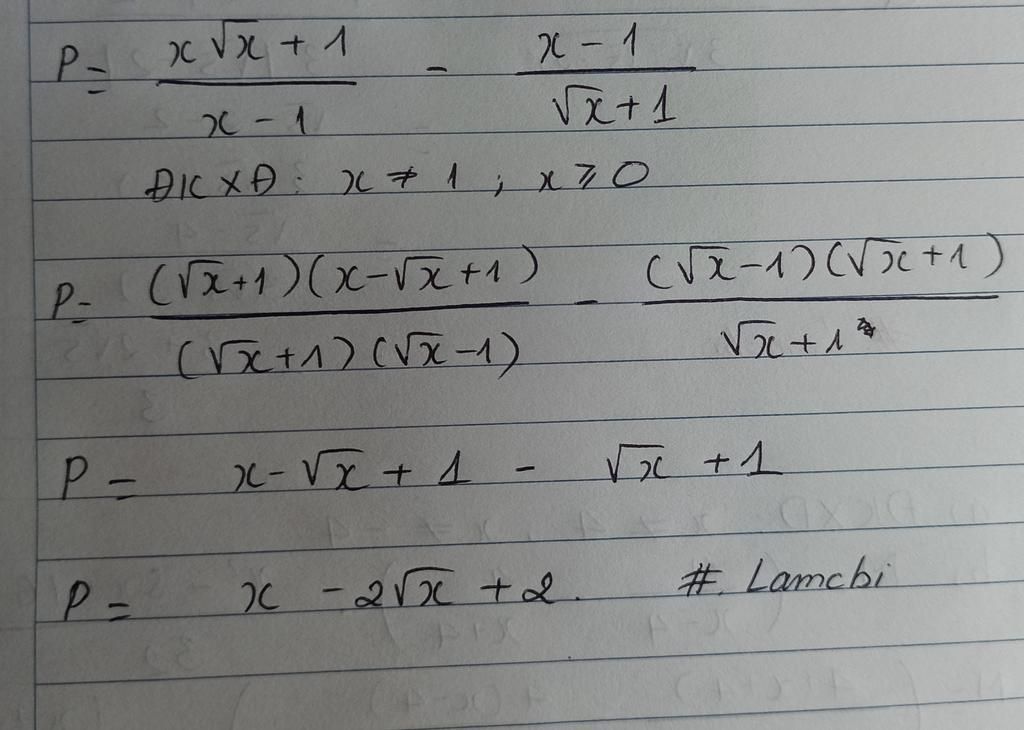 P = (x√x + 1)/(x - 1) - (x - 1)/(√x + 1)
ĐKXĐ: x ≠ 1 ; x ⩾ 0
P = ((√x+1)(x-√x+1))/((√x+1)(√x-1)) - ((√x-1)(√x+1))/(√x+1)
P = x-√x + 1 - √x + 1
P = x - 2√x + 2. #. Lamchi